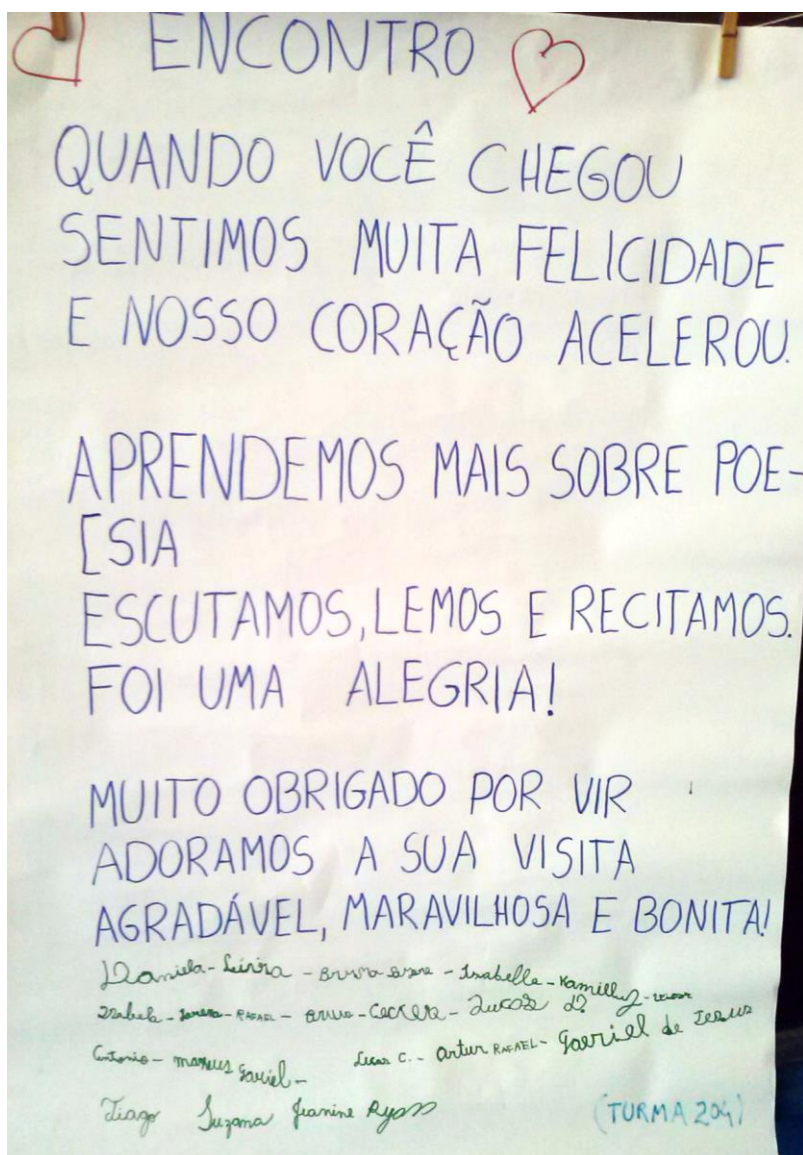 ENCONTRO
QUANDO VOCÊ CHEGOU
SENTIMOS MUITA FELICIDADE
E NOSSO CORAÇÃO ACELEROU.
APRENDEMOS MAIS SOBRE POE-
[SIA
ESCUTAMOS, LEMOS E RECITAMOS.
FOI UMA ALEGRIA!
MUITO OBRIGADO POR VIR
ADORAMOS A SUA VISITA
AGRADÁVEL, MARAVILHOSA E BONITA!
Daniela - - Bruna - Isabelle - Kamilly -
Izabela - - RAFAEL - Bruno - - Lucas D.
Antonio - Lucas C. - Artur RAFAEL - Gabriel de Jesus
Tiago Suzana Jeanine
(TURMA 204)